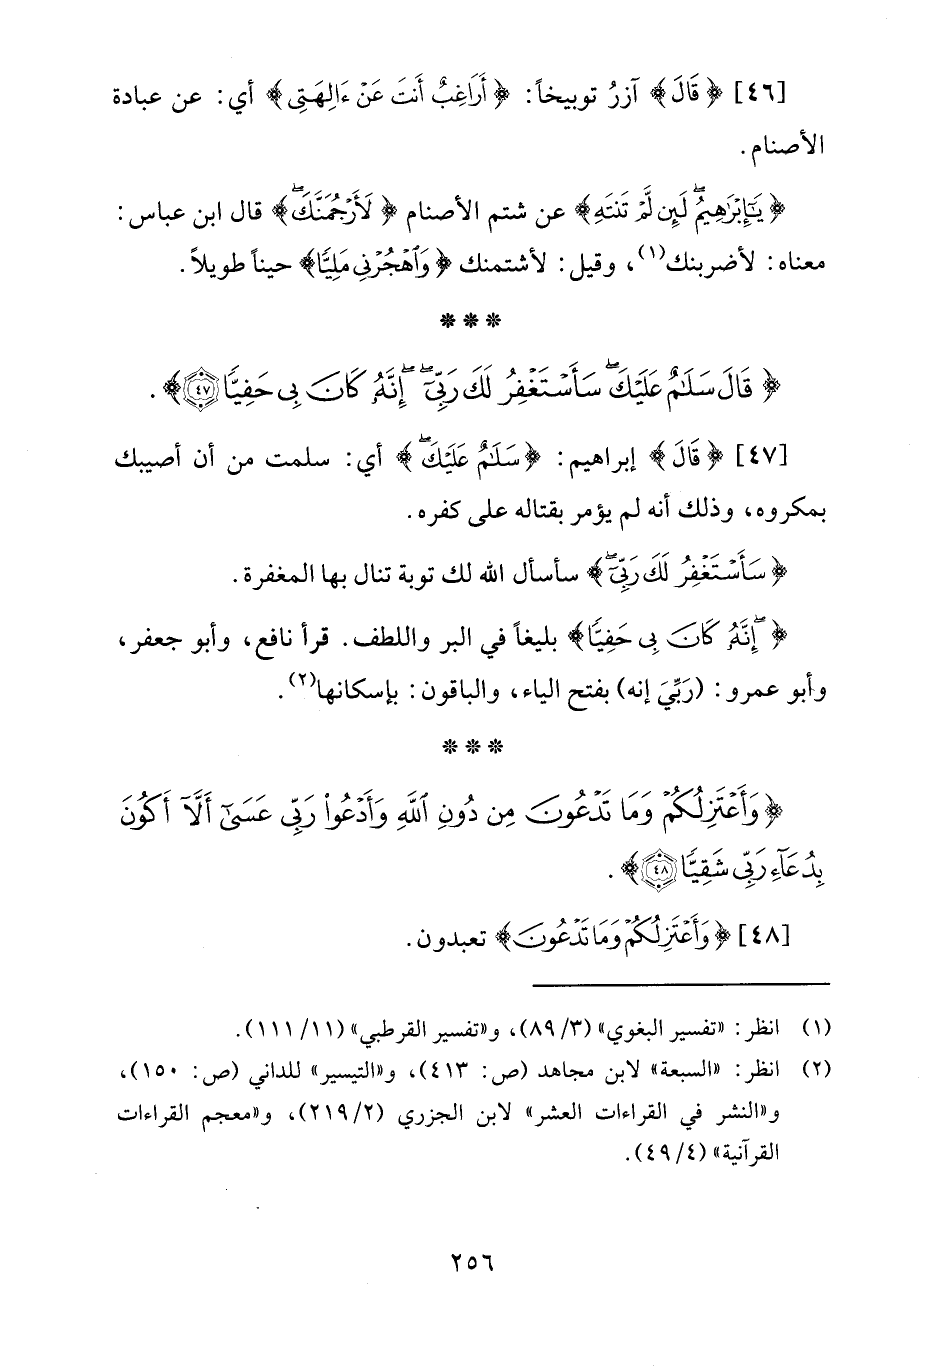 [٤٦] ﴿قَالَ﴾ آزرُ توبيخاً: ﴿أَرَاغِبٌ أَنتَ عَنْ ءَالِهَتِى﴾ أي: عن عبادة
الأصنام.
﴿يَـٰٓإِبْرَٰهِيمُ ۖ لَئِن لَّمْ تَنتَهِ﴾ عن شتم الأصنام ﴿لَأَرْجُمَنَّكَ ۖ﴾ قال ابن عباس:
معناه: لأضربنك(١)، وقيل: لأشتمنك ﴿وَٱهْجُرْنِى مَلِيًّا﴾ حيناً طويلاً.
* * *
﴿قَالَ سَلَـٰمٌ عَلَيْكَ ۖ سَأَسْتَغْفِرُ لَكَ رَبِّىٓ ۖ إِنَّهُۥ كَانَ بِى حَفِيًّا ٤٧﴾.
[٤٧] ﴿قَالَ﴾ إبراهيم: ﴿سَلَـٰمٌ عَلَيْكَ ۖ﴾ أي: سلمت من أن أصيبك
بمكروه، وذلك أنه لم يؤمر بقتاله على كفره.
﴿سَأَسْتَغْفِرُ لَكَ رَبِّىٓ ۖ﴾ سأسأل الله لك توبة تنال بها المغفرة.
﴿ۖ إِنَّهُۥ كَانَ بِى حَفِيًّا﴾ بليغاً في البر واللطف. قرأ نافع، وأبو جعفر،
وأبو عمرو: (رَبِّيَ إنه) بفتح الياء، والباقون: بإسكانها(٢).
* * *
﴿وَأَعْتَزِلُكُمْ وَمَا تَدْعُونَ مِن دُونِ ٱللَّهِ وَأَدْعُوا۟ رَبِّى عَسَىٰٓ أَلَّآ أَكُونَ
بِدُعَآءِ رَبِّى شَقِيًّا ٤٨﴾.
[٤٨] ﴿وَأَعْتَزِلُكُمْ وَمَا تَدْعُونَ﴾ تعبدون.
(١) انظر: «تفسير البغوي» (٣/ ٨٩)، و«تفسير القرطبي» (١١/ ١١١).
(٢) انظر: «السبعة» لابن مجاهد (ص: ٤١٣)، و«التيسير» للداني (ص: ١٥٠)،
و«النشر في القراءات العشر» لابن الجزري (٢/ ٢١٩)، و«معجم القراءات
القرآنية» (٤/ ٤٩).
٢٥٦